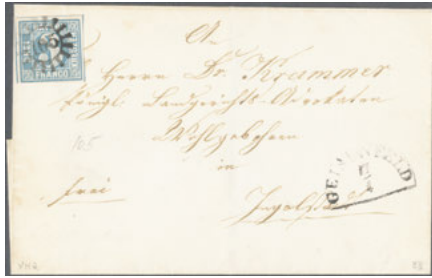 An
Herrn Dr. Krammer
Königl. Landgerichts-Advokaten
Wohlgeboren
in
frei
Ingolstadt
FRANCO
GEISENFELD
105